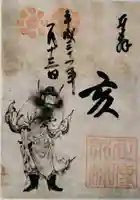 奉拝
亥
平成三十一年
一月十三日